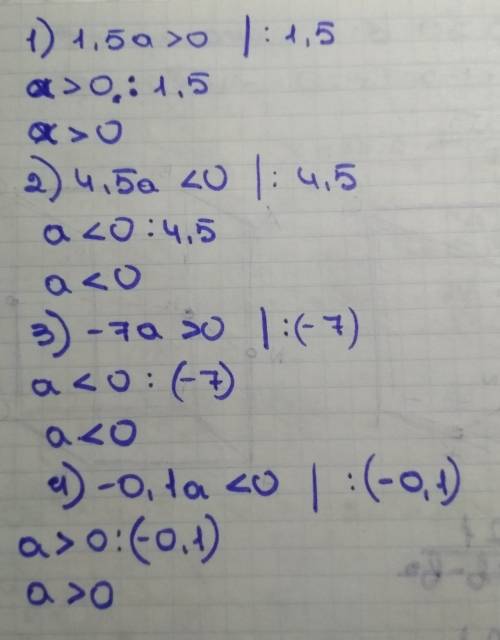 1) 1,5a>0 | : 1,5
a>0 : 1,5
a>0
2) 4,5a <0 | : 4,5
a <0 : 4,5
a <0
3) -7a >0 | : (-7)
a <0 : (-7)
a <0
4) -0,1a <0 | : (-0,1)
a > 0 : (-0,1)
a >0